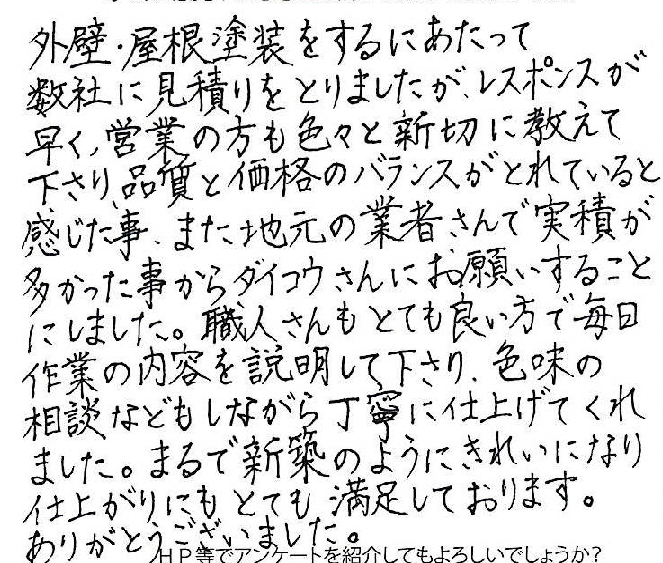 外壁・屋根塗装をするにあたって
数社に見積りをとりましたが、レスポンスが
早く、営業の方も色々と新切に教えて
下さり、品質と価格のバランスがとれていると
感じた事、また地元の業者さんで実積が
多かった事からダイコウさんにお願いすること
にしました。職人さんもとても良い方で毎日
作業の内容を説明して下さり、色味の
相談などもしながら丁寧に仕上げてくれ
ました。まるで新築のようにきれいになり
仕上がりにもとても満足しております。
ありがとうございました。
HP等でアンケートを紹介してもよろしいでしょうか?